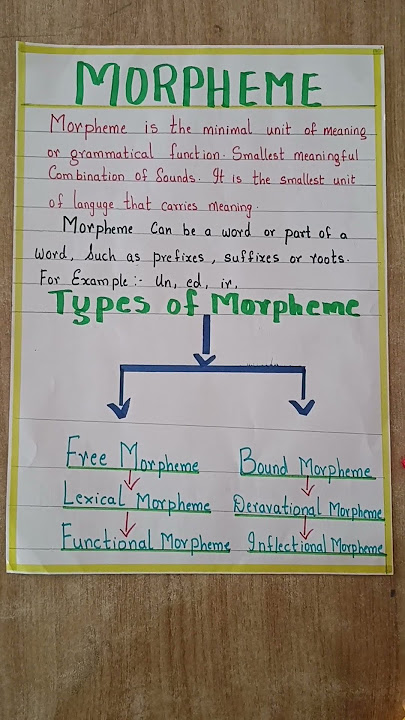 MORPHEME
Morpheme is the minimal unit of meaning
or grammatical function. Smallest meaningful
Combination of Sounds. It is the smallest unit
of languge that carries meaning.
Morpheme Can be a word or part of a
word, Such as prefixes, suffixes or roots.
For Example:- Un, ed, ir.
Types of Morpheme
Free Morpheme Bound Morpheme
Lexical Morpheme Deravational Morpheme
Functional Morpheme Inflectional Morpheme